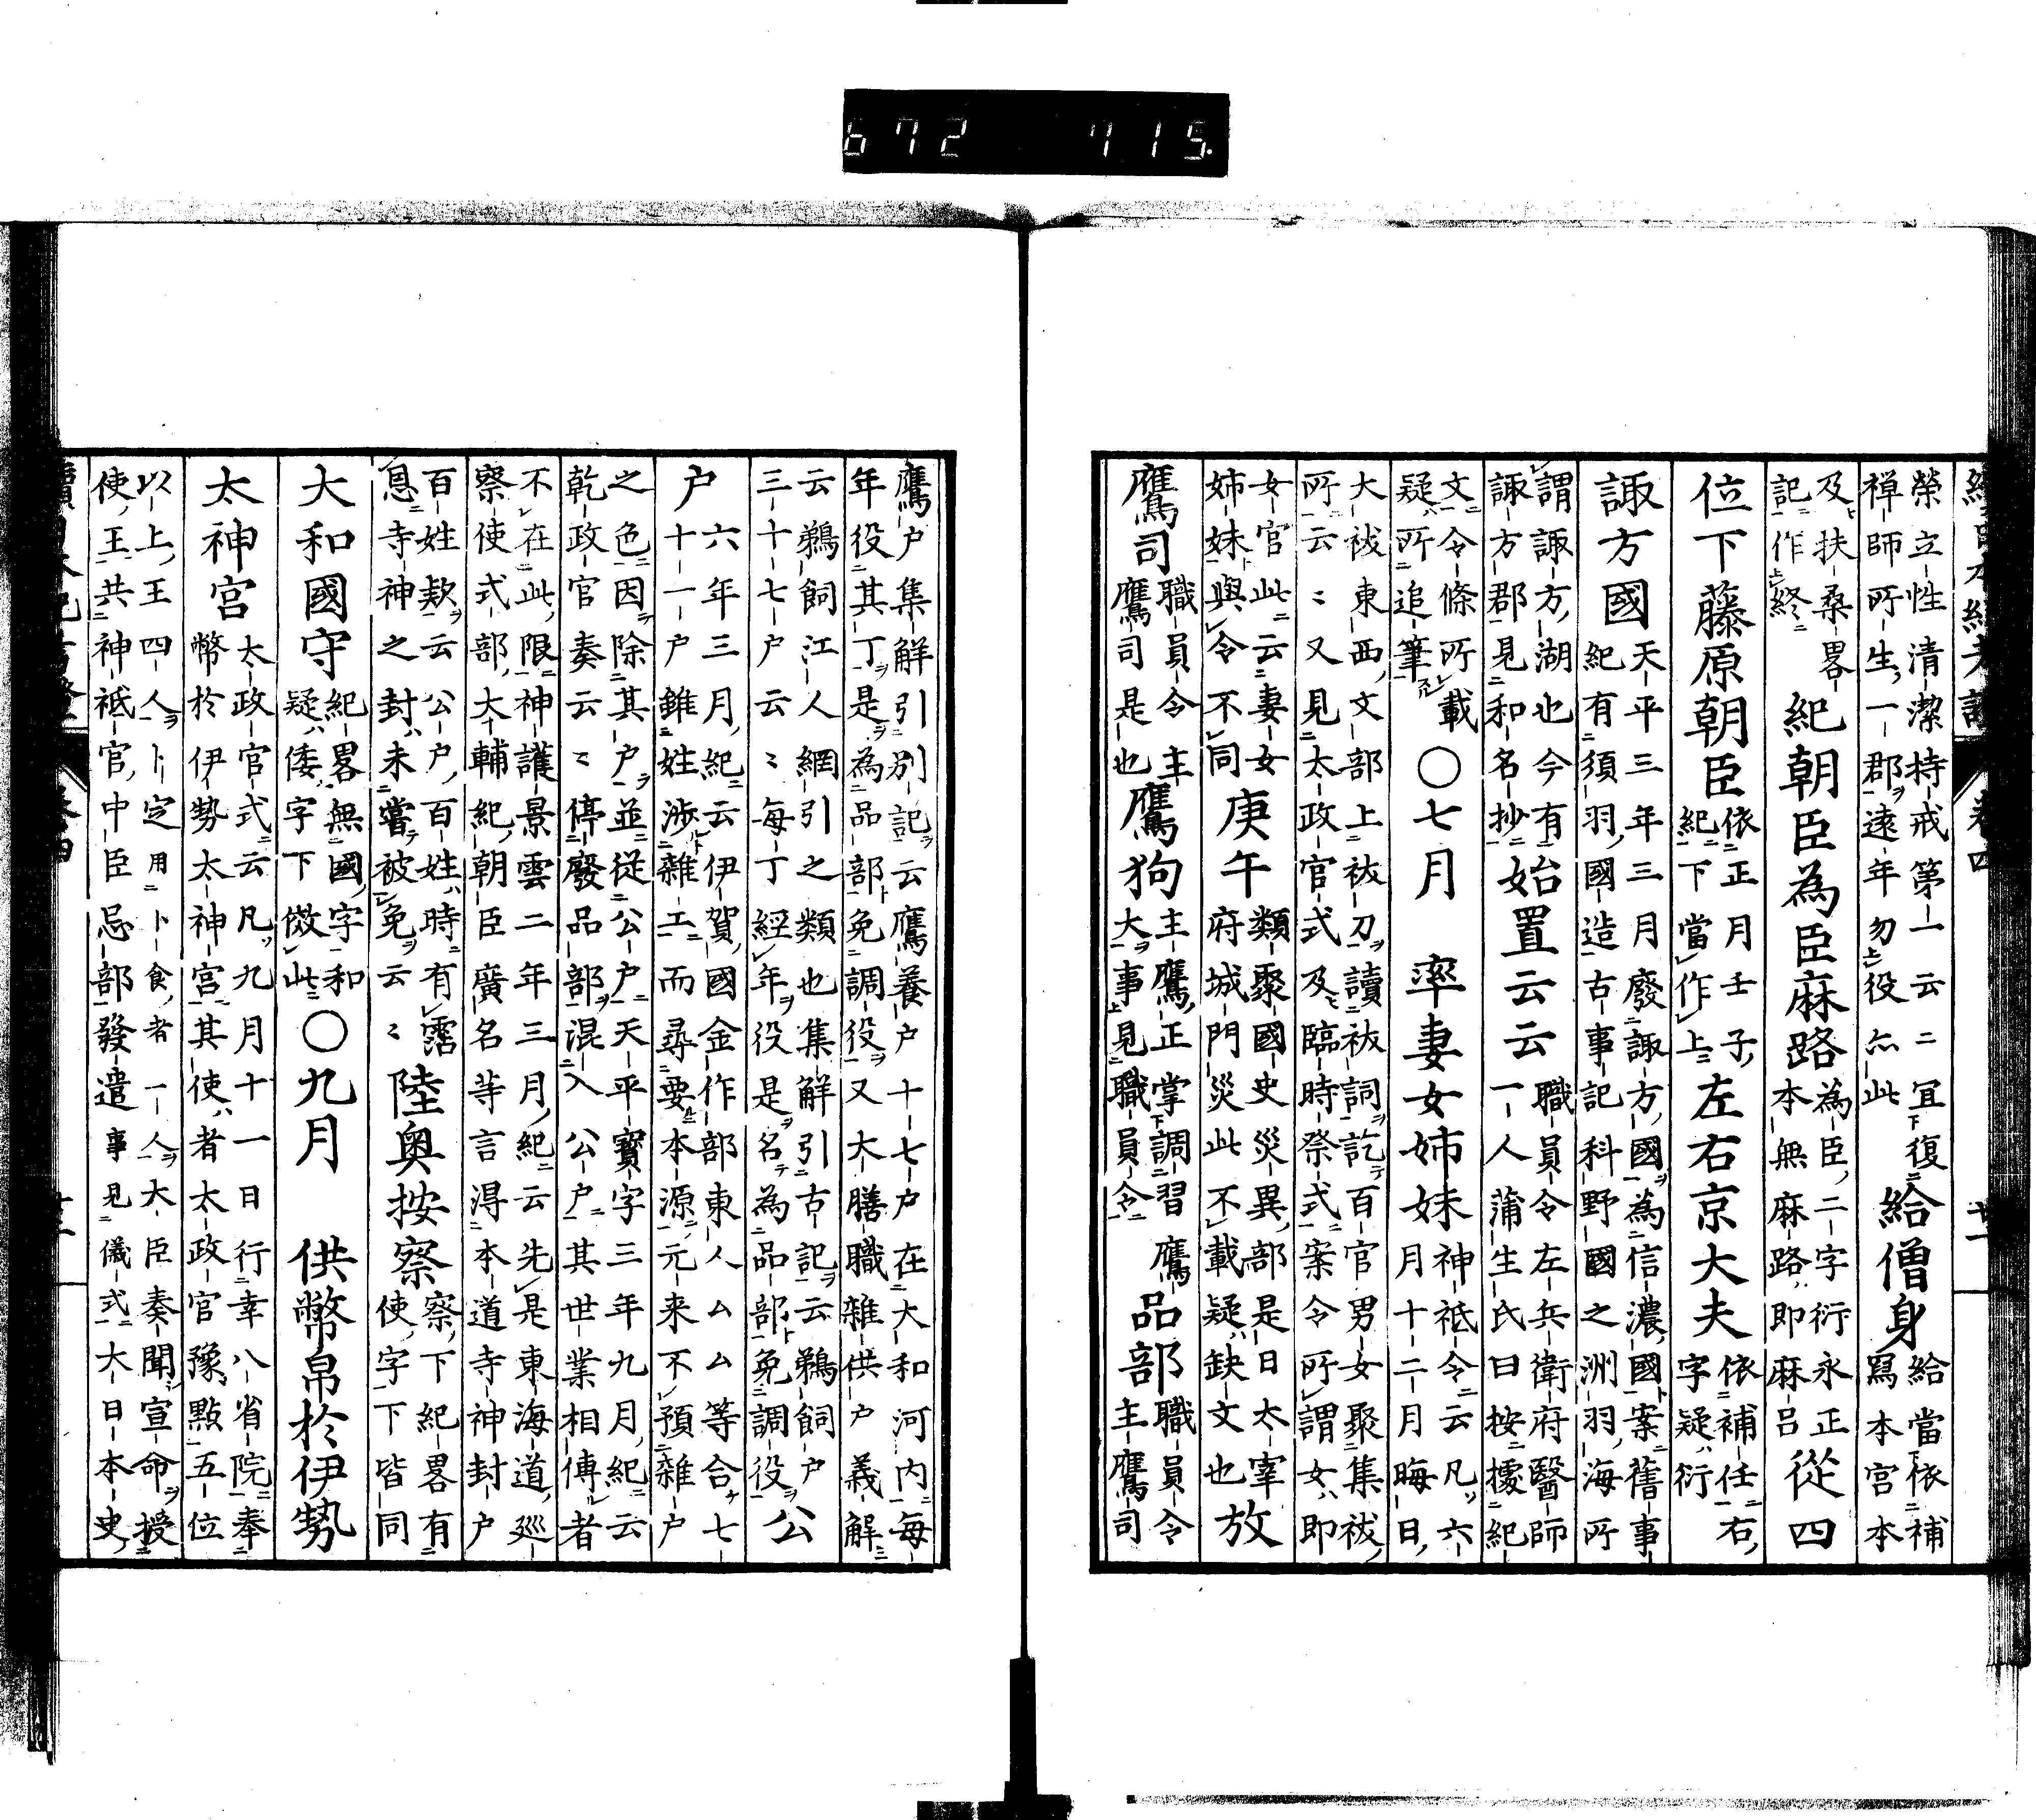 672 715.
榮立性清潔持戒第一云二宜復
禅師所生一郡遠年勿役亦此
給僧身
給當依補
寫本宮本
及扶桑畧
記作終
紀朝臣為臣麻路
為臣二字衍永正
本無麻路即麻呂
從四
位下藤原朝臣
依正月壬子
紀下當作上
左右京大夫
依補任右
字疑衍
諏方國
天平三年三月廢諏方國為信濃國案舊事
紀有須羽國造古事記科野國之洲羽海所
謂諏方湖也今有
諏方郡見和名抄
始置云云
職員令左兵衛府醫師
一人蒲生氏曰按據紀
文令條所載
疑所追筆
○七月
率妻女姉妹
神祗令云凡六
月十二月晦日
大祓東西文部上祓刀讀祓詞訖百官男女聚集祓
所云〻又見太政官式及臨時祭式案令所謂女即
女官此云妻女
姉妹與令不同
庚午
類聚國史災異部是日太宰
府城門災此不載疑缺文也
放
鷹司
職員令主
鷹司是也
鷹狗
主鷹正掌調習鷹
大事見職員令
品部
職員令
主鷹司
鷹户集解引別記云鷹養户十七户在大和河内每
年役其丁是為品部免調役又大膳職雜供户義解
云鵜飼江人網引之類也集解引古記云鵜飼户
三十七户云〻每丁經年役是名為品部免調役
公
户
六年三月紀云伊賀國金作部東人ムム等合七
十一户雖姓涉雜工而尋要本源元来不預雜户
之色因除其户並從公户天平寶字三年九月紀云
乾政官奏云〻停廢品部混入公户其世業相傳者
不在此限神護景雲二年三月紀云先是東海道廵
察使式部大輔紀朝臣廣名等言得本道寺神封户
百姓欵云公户百姓時有霑
息寺神之封未嘗被免云〻
陸奥按察
察下紀畧有
使字下皆同
大和國守
紀畧無國字和
疑倭字下傚此
○九月
供幣帛於伊勢
太神宮
太政官式云凡九月十一日行幸八省院奉
幣於伊勢太神宮其使者太政官豫點五位
以上王四人卜定用卜食者一人大臣奏聞宣命授
使王共神祗官中臣忌部發遣事見儀式大日本史